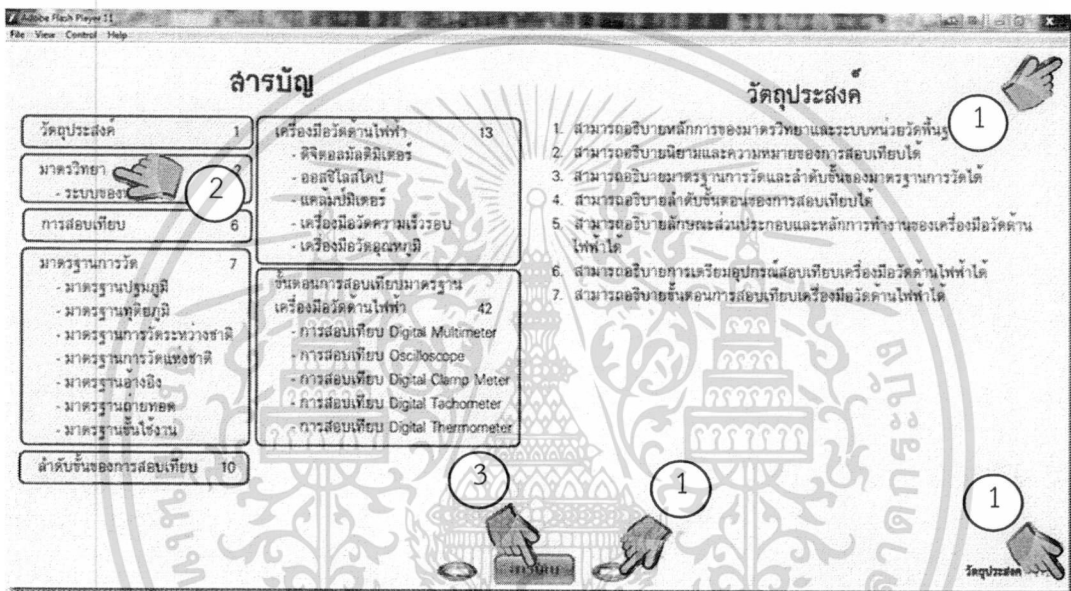 Adobe Flash Player 11
File View Control Help
สารบัญ
วัตถุประสงค์ 1
มาตรวิทยา 2
- ระบบของ
2
การสอบเทียบ 6
มาตรฐานการวัด 7
- มาตรฐานปฐมภูมิ
- มาตรฐานทุติยภูมิ
- มาตรฐานการวัดระหว่างชาติ
- มาตรฐานการวัดแห่งชาติ
- มาตรฐานอ้างอิง
- มาตรฐานถ่ายทอด
- มาตรฐานขั้นใช้งาน
ลำดับขั้นของการสอบเทียบ 10
เครื่องมือวัดด้านไฟฟ้า 13
- ดิจิตอลมัลติมิเตอร์
- ออสซิโลสโคป
- แคล้มป์มิเตอร์
- เครื่องมือวัดความเร็วรอบ
- เครื่องมือวัดอุณหภูมิ
ขั้นตอนการสอบเทียบมาตรฐาน
เครื่องมือวัดด้านไฟฟ้า 42
- การสอบเทียบ Digital Multimeter
- การสอบเทียบ Oscilloscope
- การสอบเทียบ Digital Clamp Meter
- การสอบเทียบ Digital Tachometer
- การสอบเทียบ Digital Thermometer
3
สารบัญ
1
วัตถุประสงค์
1
1. สามารถอธิบายหลักการของมาตรวิทยาและระบบหน่วยวัดพื้นฐ
2. สามารถอธิบายนิยามและความหมายของการสอบเทียบได้
3. สามารถอธิบายมาตรฐานการวัดและลำดับขั้นของมาตรฐานการวัดได้
4. สามารถอธิบายลำดับขั้นตอนของการสอบเทียบได้
5. สามารถอธิบายลักษณะส่วนประกอบและหลักการทำงานของเครื่องมือวัดด้าน
ไฟฟ้าได้
6. สามารถอธิบายการเตรียมอุปกรณ์สอบเทียบเครื่องมือวัดด้านไฟฟ้าได้
7. สามารถอธิบายขั้นตอนการสอบเทียบเครื่องมือวัดด้านไฟฟ้าได้
1
วัตถุประสงค์